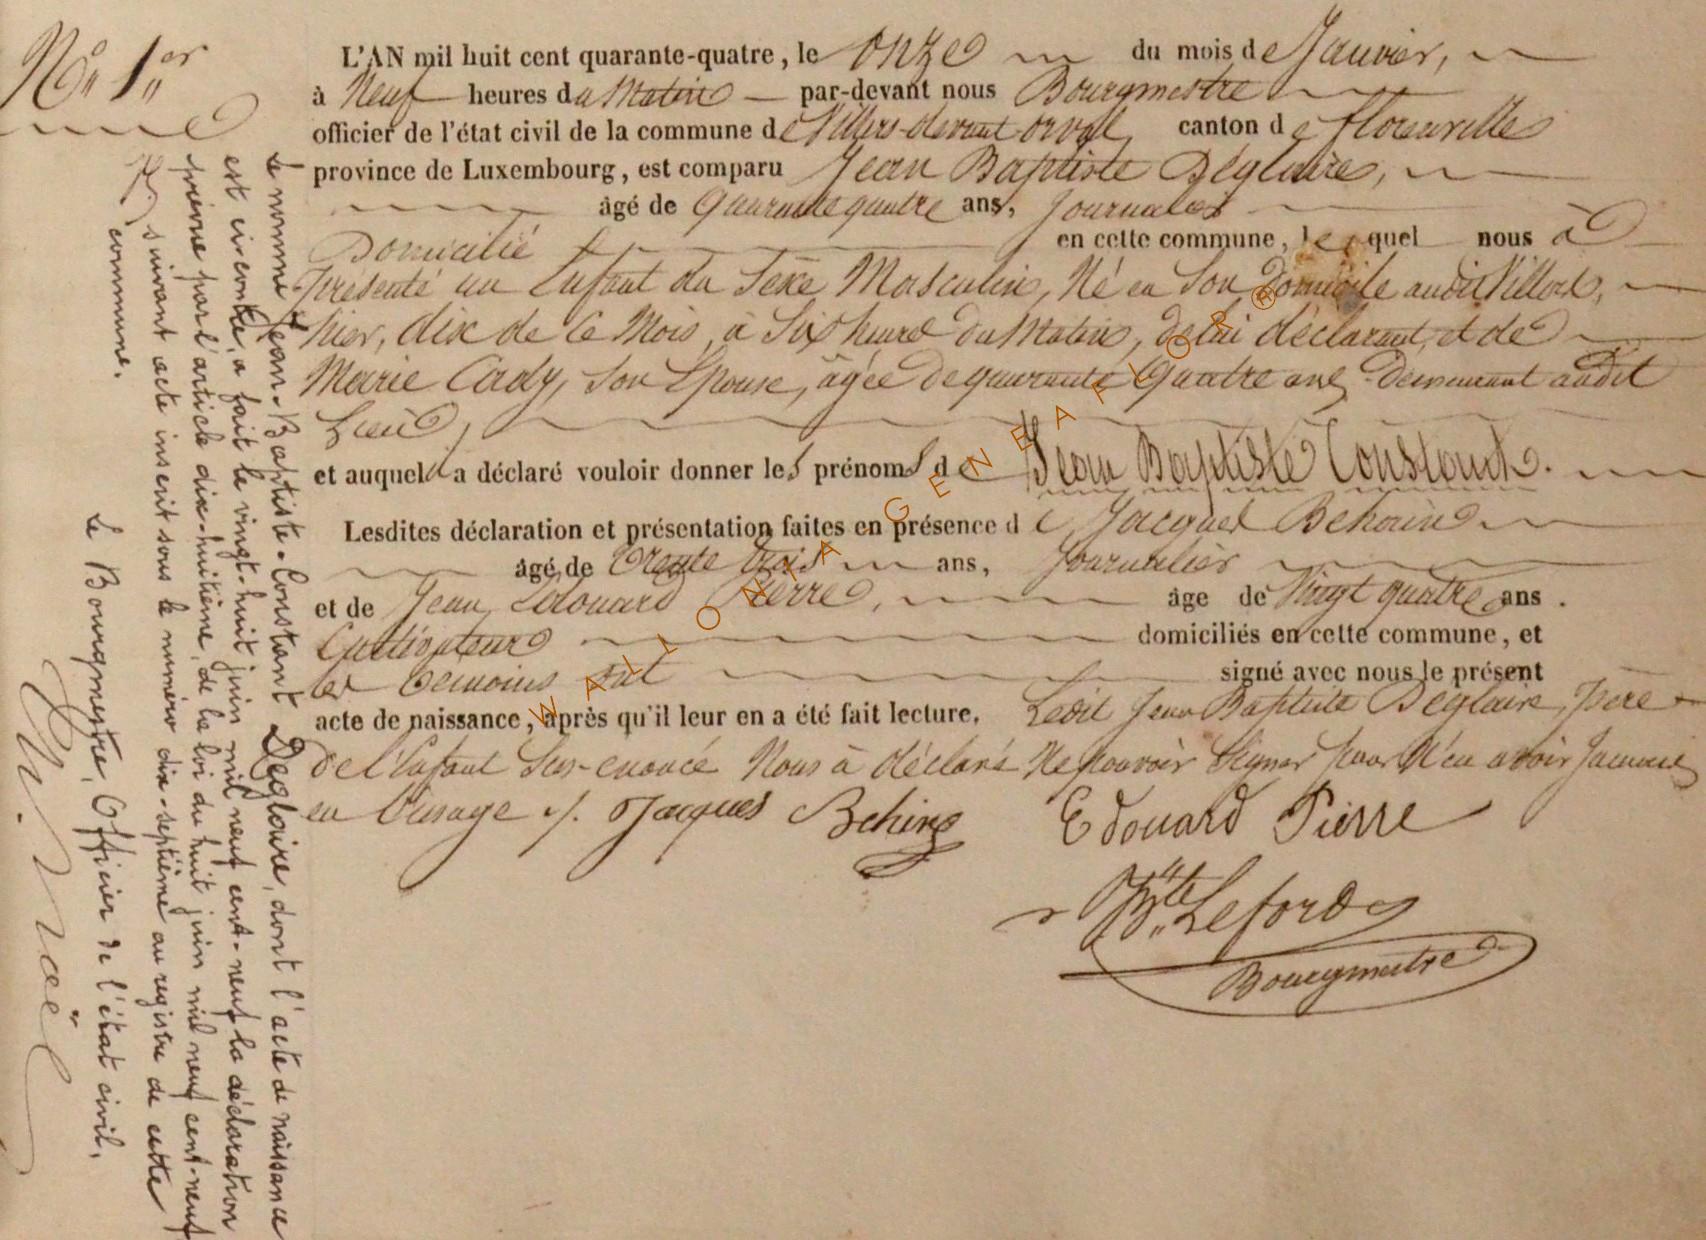 N° 1er
L'AN mil huit cent quarante-quatre, le onze du mois de Janvier,
à Neuf heures du Matin par-devant nous Bourgmestre
officier de l'état civil de la commune de Villers-devant-orval, canton de florenville
province de Luxembourg, est comparu Jean Baptiste Déglaire,
âgé de Quarantequatre ans, Journalier
Domicilié en cette commune, lequel nous à
présenté un Enfant du Sexe Masculin, Né en Son Domicile audit Villers,
hier, dix de Ce Mois, à Six heures du Matin, de lui déclarant, et de
Marie Cady, Son Epouse, âgée de quarante Quatre ans Demeurant audit
Lieu
et auquel il a déclaré vouloir donner les prénoms de Jean Baptiste Constant.
Lesdites déclaration et présentation faites en présence de Jacques Behin
âgé de trente trois ans, Journalier
et de Jean Edouard Pierre, âge de Vingt quatre ans.
Cultivateur domiciliés en cette commune, et
les témoins ont signé avec nous le présent
acte de naissance, après qu'il leur en a été fait lecture. Ledit Jean Baptiste Déglaire, père
de l'Enfant Sus-enoncé Nous à déclaré Ne pouvoir Signer pour N'en avoir Jamais
eu l'usage ./. Jacques Behin Edouard Pierre
Bte Leford
Bourgmestre
Le nommé Jean-Baptiste-Constant Déglaire, dont l'acte de naissance
est ci-contre, a fait le vingt-huit juin mil neuf cent-neuf la déclaration
prévue par l'article dix-huitième, de la loi du huit juin mil neuf cent-neuf
suivant acte inscrit sous le numéro dix-septième au registre de cette
commune.
Le Bourgmestre, Officier de l'état civil,
Noël
WALLONIA GENEAFLOR®